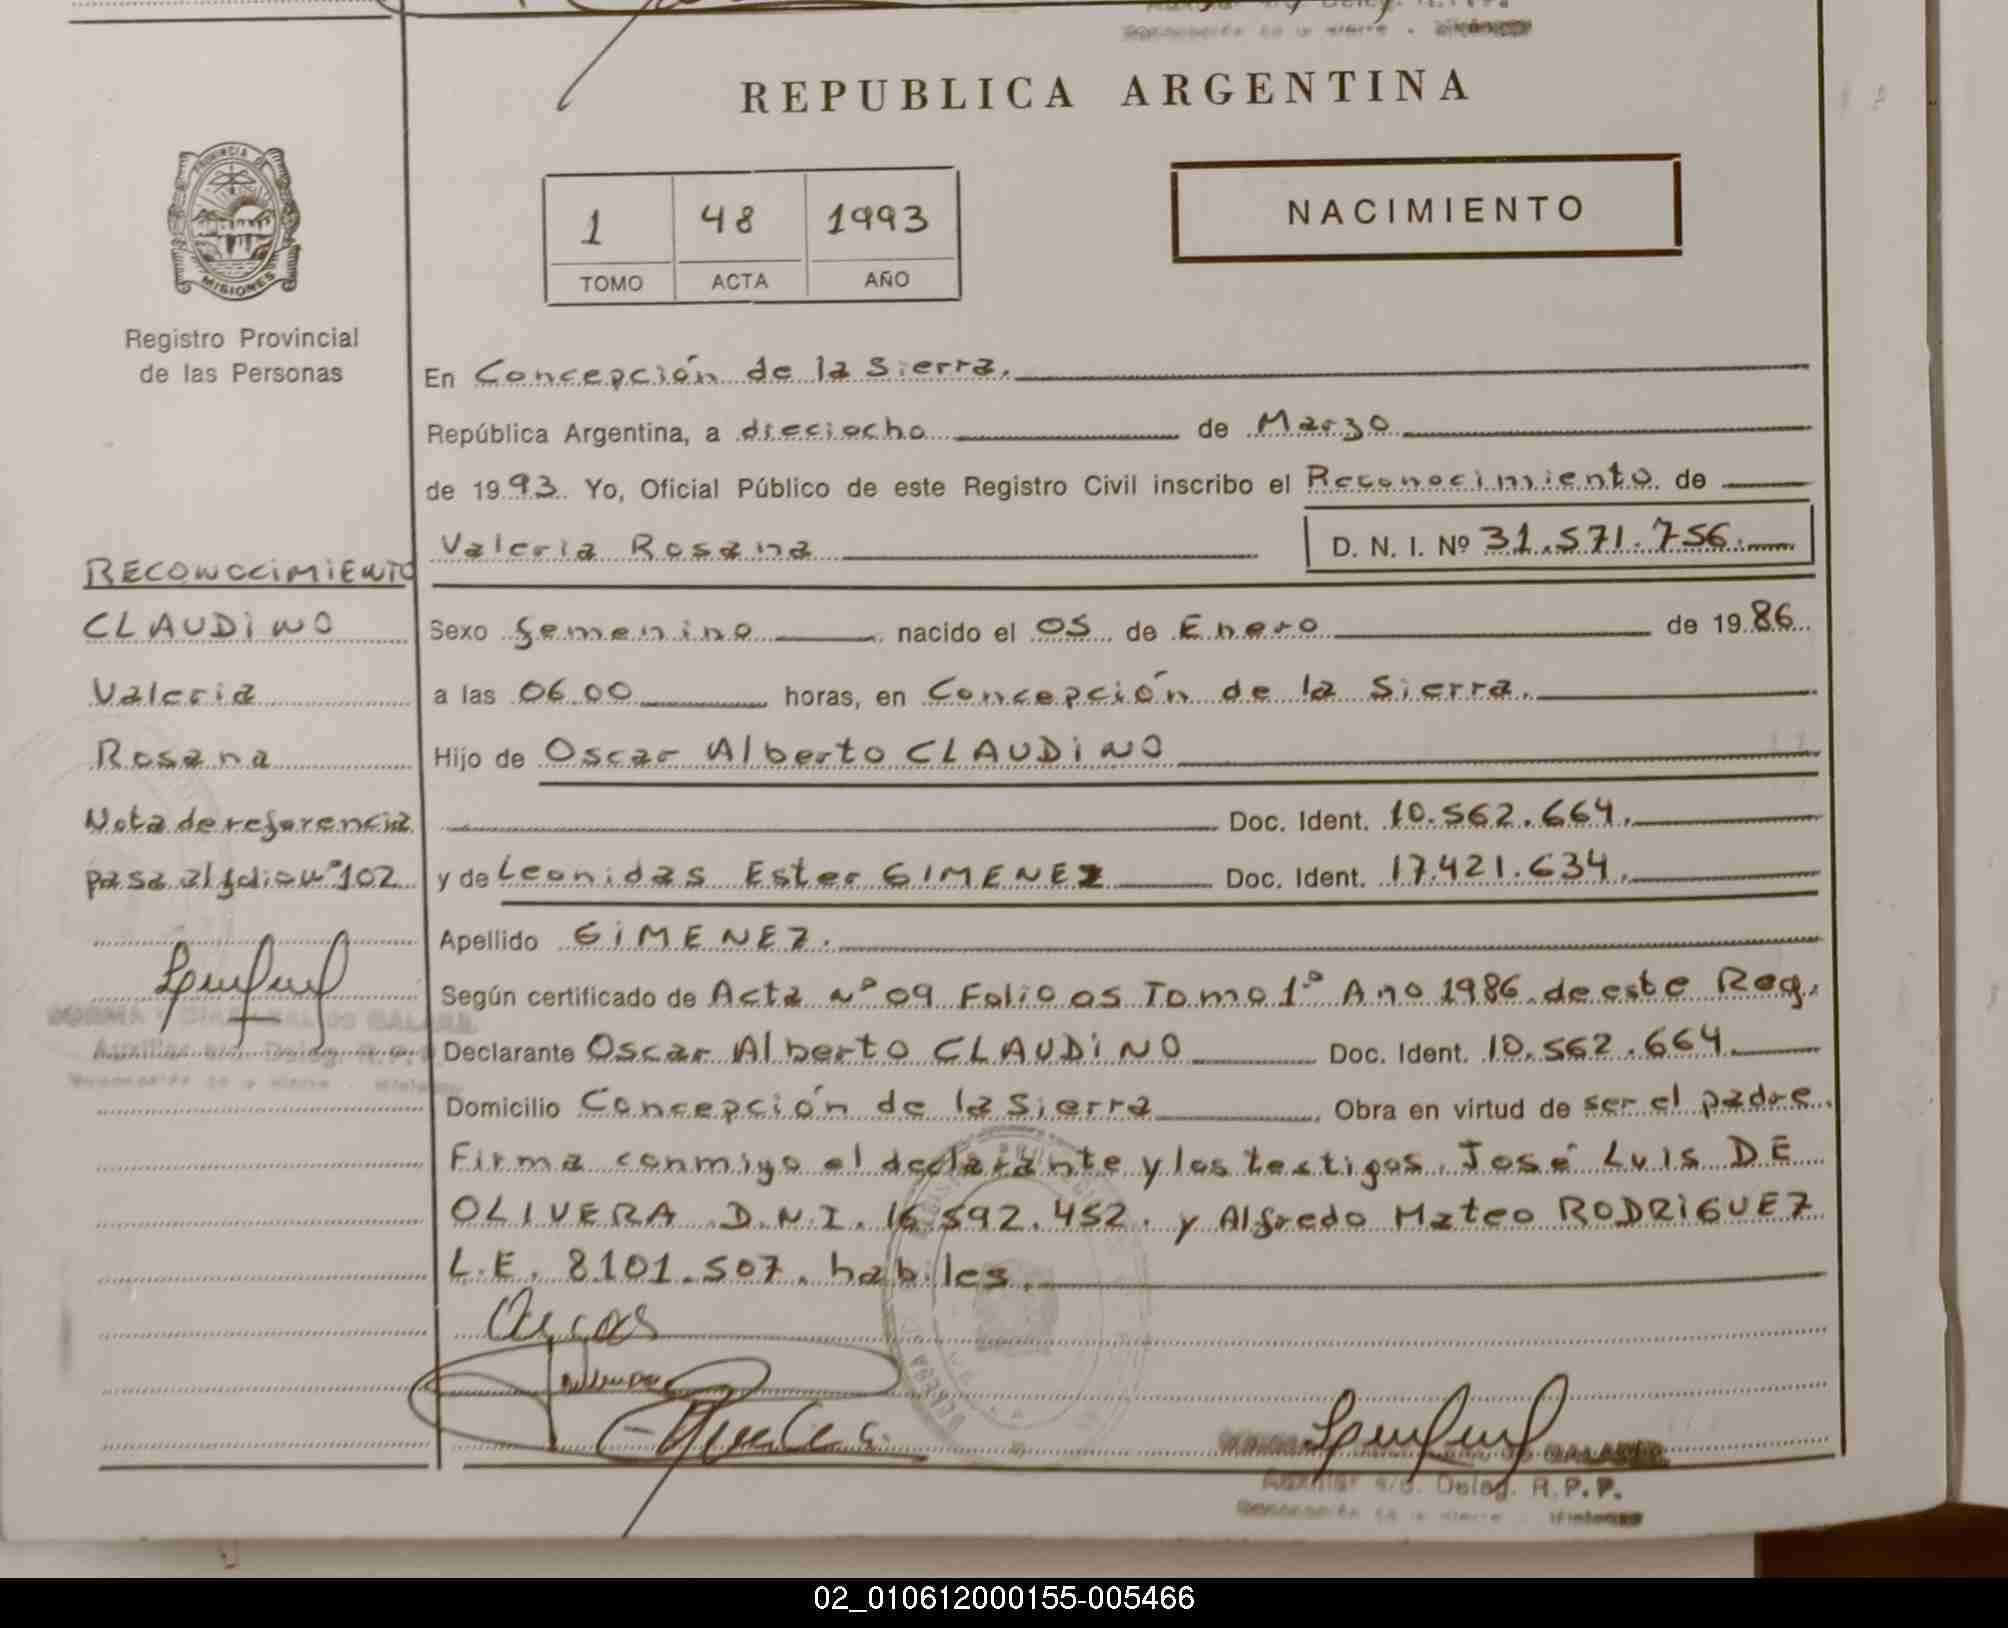 REPUBLICA ARGENTINA
PROVINCIA DE
MISIONES
Registro Provincial
de las Personas
1 48 1993
TOMO ACTA AÑO
NACIMIENTO
En Concepción de la Sierra.
República Argentina, a dieciocho de Marzo
de 1993. Yo, Oficial Público de este Registro Civil inscribo el Reconocimiento de
Valeria Rosana D. N. I. Nº 31.571.756.
Sexo femenino nacido el 05 de Enero de 1986
a las 06.00 horas, en Concepción de la Sierra.
Hijo de Oscar Alberto CLAUDiNO
Doc. Ident. 10.562.664.
y de Leonidas Ester GIMENEZ Doc. Ident. 17.421.634.
Apellido GiMENEZ.
Según certificado de Acta nº 09 Folio 05 Tomo 1º Año 1986 de este Reg.
Declarante Oscar Alberto CLAUDiNO Doc. Ident. 10.562.664
Domicilio Concepción de la Sierra, Obra en virtud de ser el padre.
Firma conmigo el declarante y los testigos, José Luis DE
OLIVERA D.N.I. 16.592.452. y Alfredo Mateo RODRiGUEZ
L.E. 8101.507. habiles.
RECONOCiMiENTO
CLAUDiNO
Valeria
Rosana
Nota de referencia
pasa al folio nº 102
Auxiliar a/c. Deleg. R.P.P.
Auxiliar a/c. Deleg. R.P.P.
02_010612000155-005466